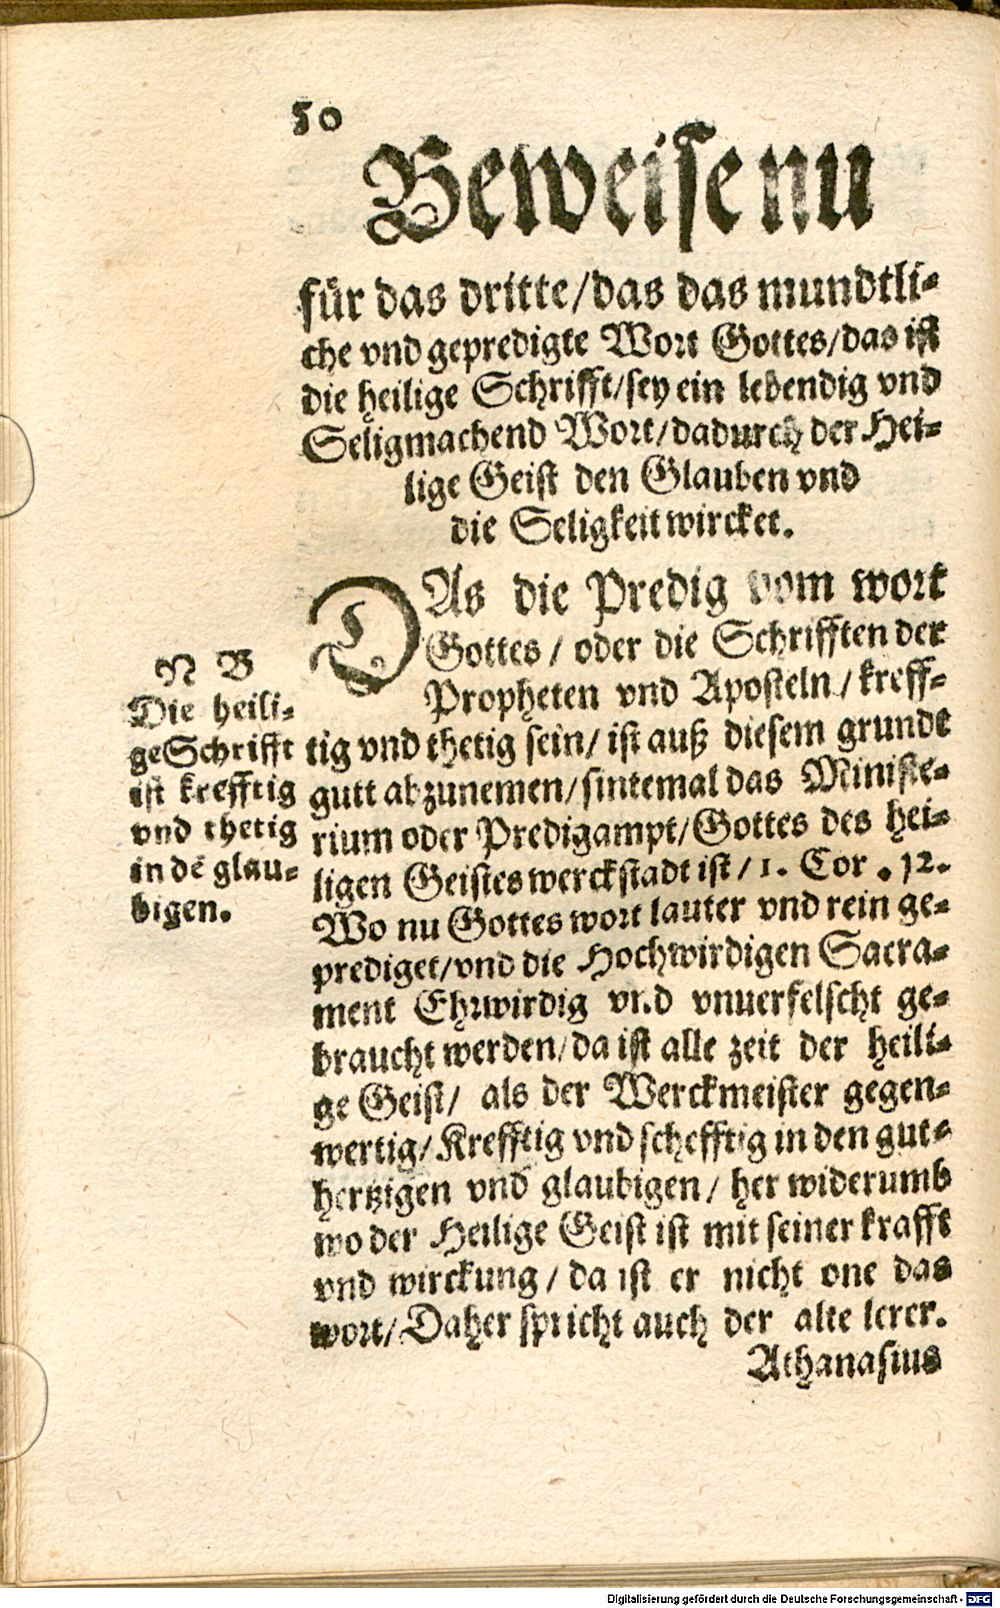 50
Beweise nu
für das dritte/das das mundtli-
che vnd gepredigte Wort Gottes/das ist
die heilige Schrifft/sey ein lebendig vnd
Seligmachend Wort/dadurch der Hei-
lige Geist den Glauben vnd
die Seligkeit wircket.
DAs die Predig vom wort
Gottes/ oder die Schrifften der
Propheten vnd Aposteln/ kreff-
tig vnd thetig sein/ ist auß diesem grunde
gutt abzunemen/sintemal das Ministe-
rium oder Predigampt/Gottes des hei-
ligen Geistes werckstadt ist/1. Cor. 12.
Wo nu Gottes wort lauter vnd rein ge-
prediget/vnd die Hochwirdigen Sacra-
ment Ehrwirdig vnd vnuerfelscht ge-
braucht werden/da ist alle zeit der heili-
ge Geist/ als der Werckmeister gegen-
wertig/Krefftig vnd schefftig in den gut-
hertzigen vnd glaubigen/ her widerumb
wo der Heilige Geist ist mit seiner krafft
vnd wirckung/ da ist er nicht one das
wort/Daher spricht auch der alte lerer.
Athanasius
N B
Die heili-
ge Schrifft
ist krefftig
vnd thetig
in dē glau-
bigen.
Digitalisierung gefördert durch die Deutsche Forschungsgemeinschaft - DFG